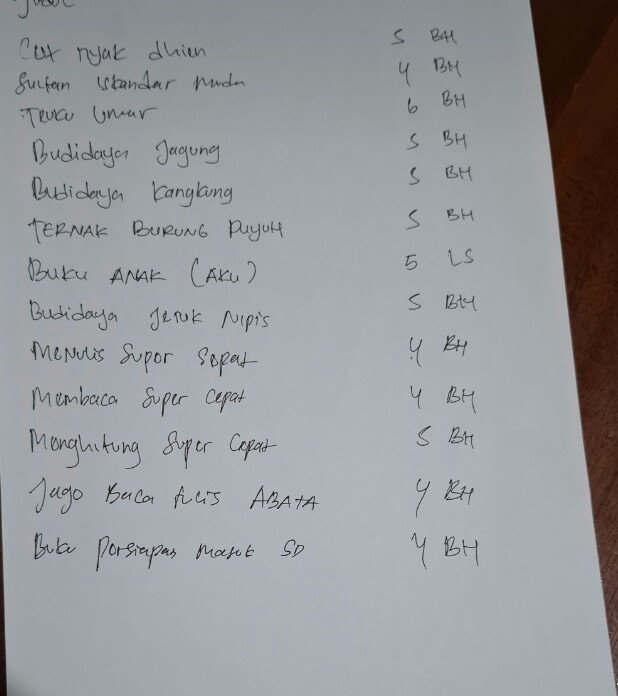 Judul
Cut nyak dhien 5 BH
Sultan Iskandar muda 4 BH
TEUKU Umar 6 BH
Budidaya Jagung 5 BH
Budidaya Kangkung 5 BH
TERNAK BURUNG PUYUH 5 BH
BUKU ANAK (AKU) 5 LS
Budidaya Jeruk Nipis 5 BH
Menulis Super Sepat 4 BH
Membaca Super Cepat 4 BH
Menghitung Super Cepat 5 BH
Jago Baca tulis ABATA 4 BH
Buku Persiapan masuk SD 4 BH